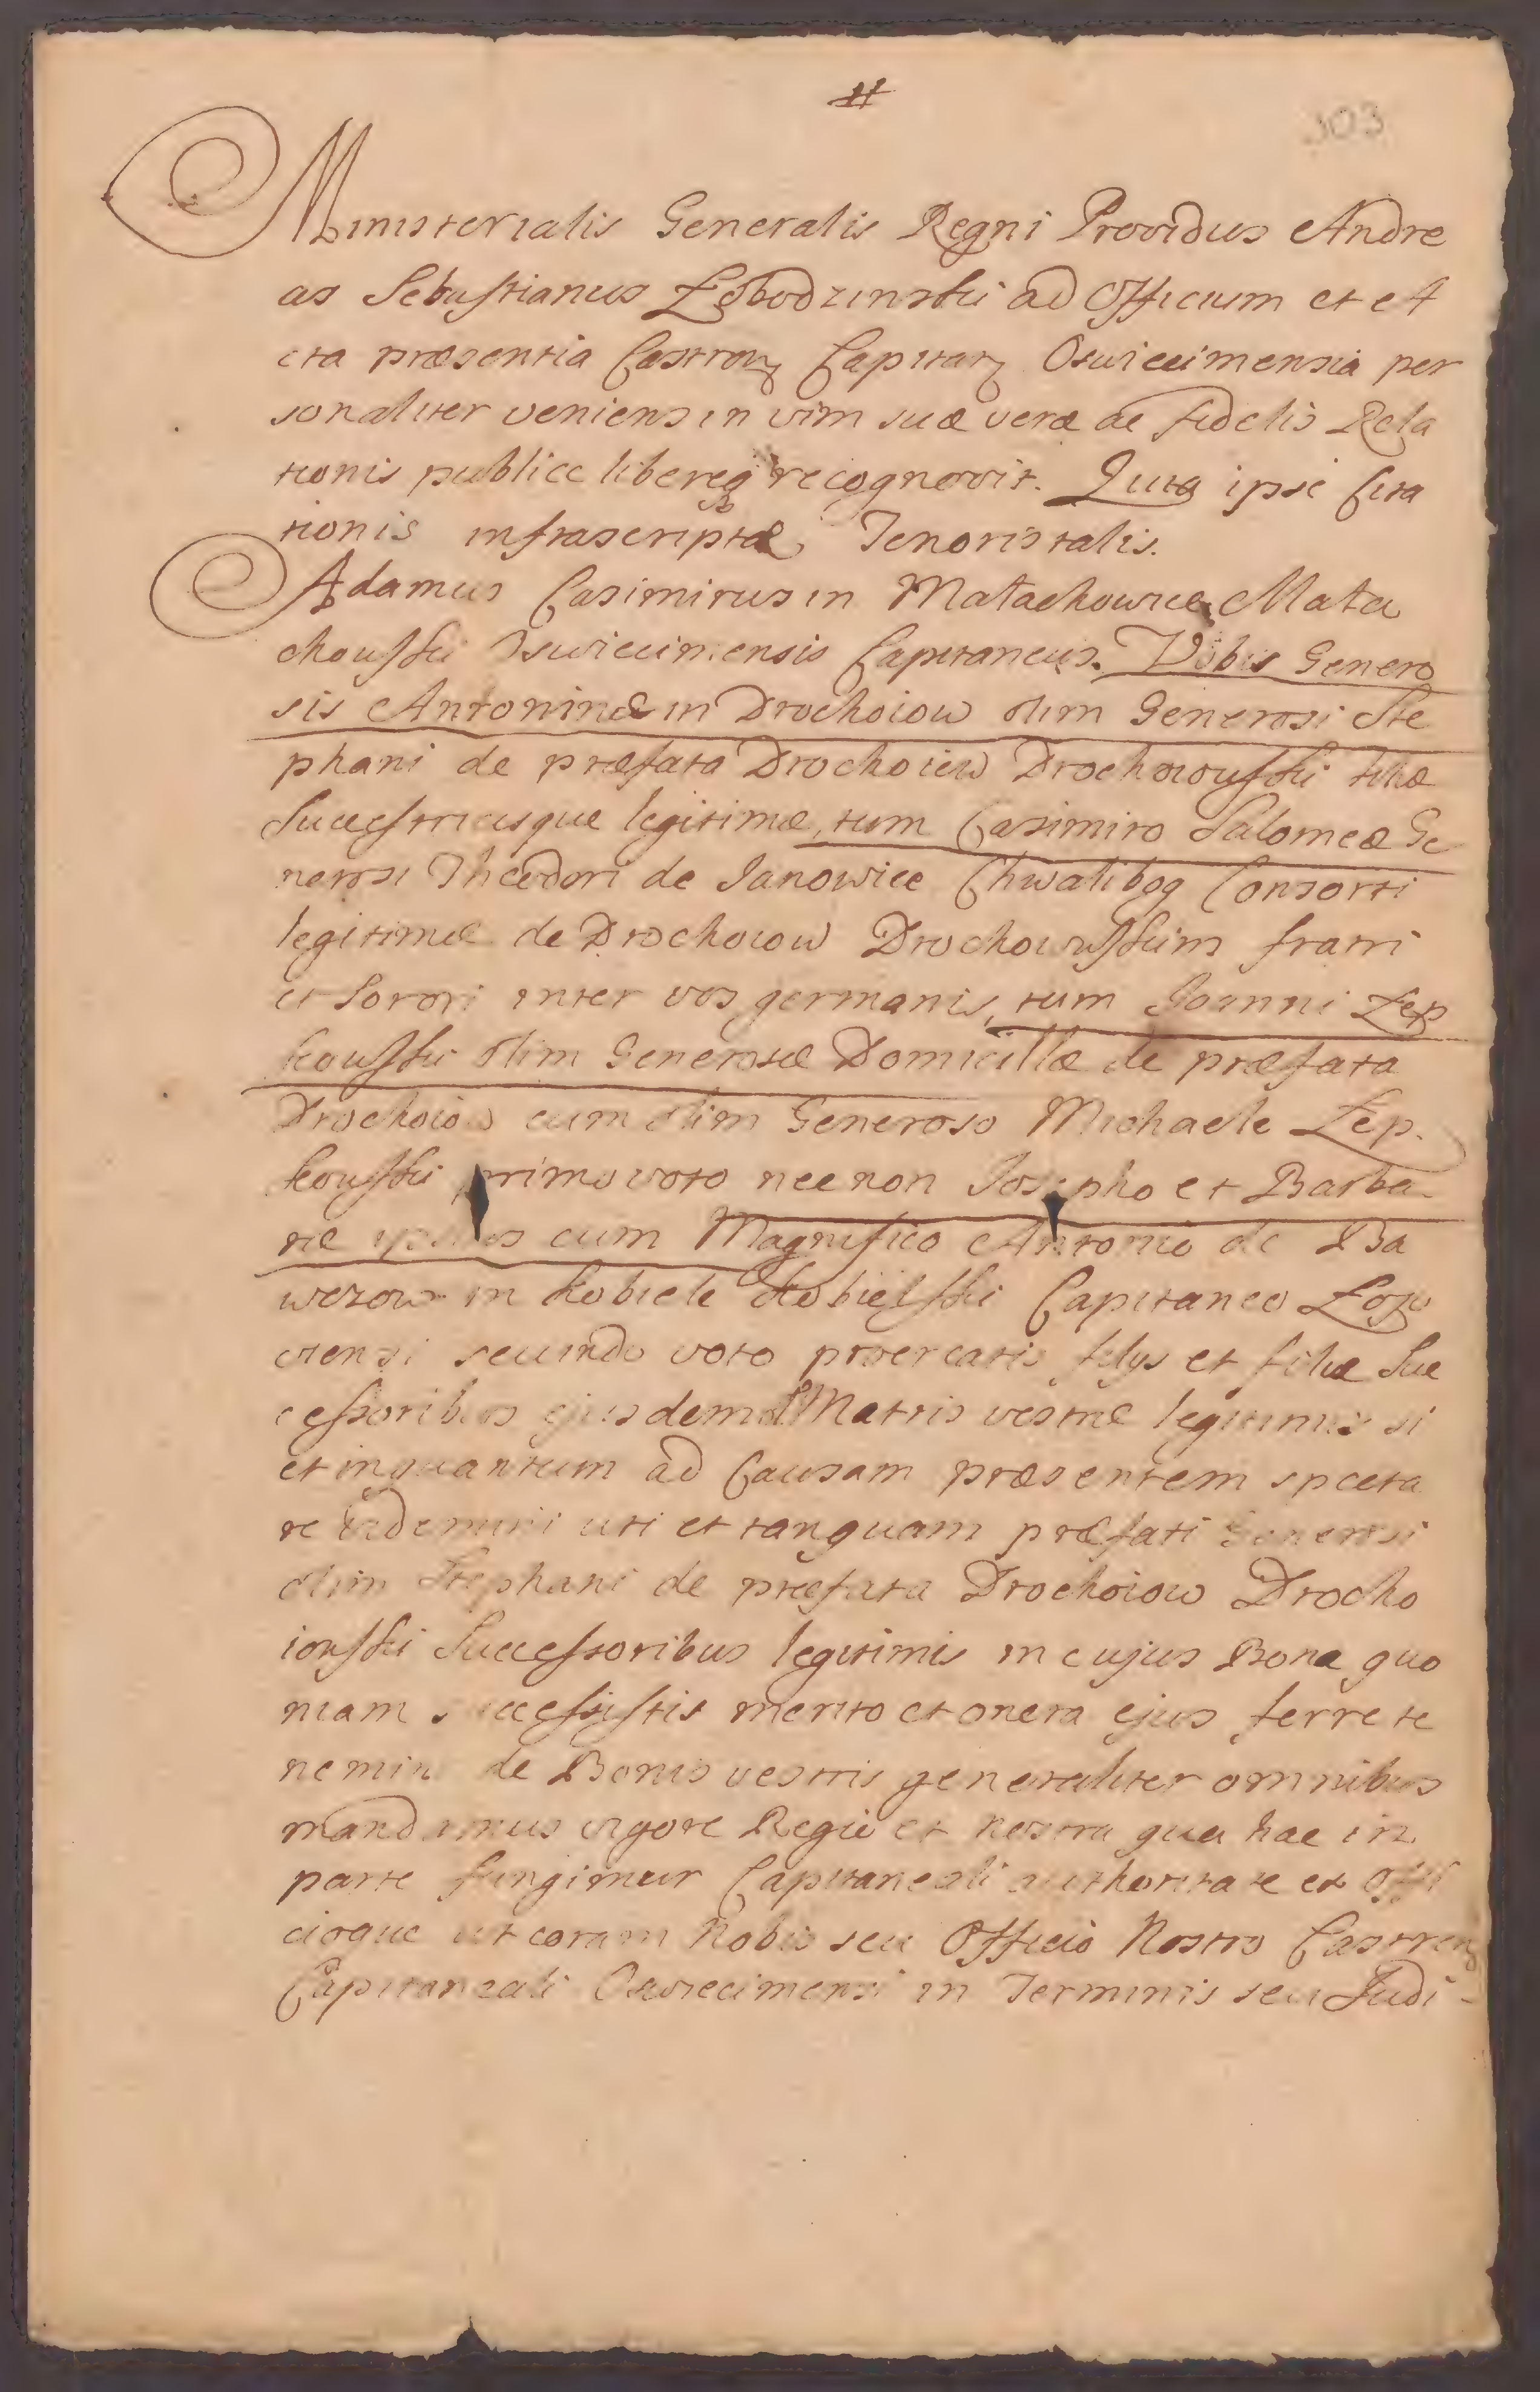 #
303
Ministerialis Generalis Regni Providus Andre
as Sebastianus Łobodzinski ad Officium et A
cta præsentia Castren Capitan Oswiecimensia per
sonaliter veniens in vim suæ veræ ac fidelis Rela
tionis publice libereq recognovit. Quia ipse Cita
tionis infrascriptæ Tenoris talis.
Adamus Casimirus in Małachowice Mała
chowski Oswiecimensis Capitaneus. Vobis Genero
sis Antoninæ in Drochoiow olim Generosi Ste
phani de præfata Drochoiew Drochoiowski filiæ
Successtricisque legitimæ, tum Casimiro Salomeæ Ge
nerosi Theodori de Janowice Chwalibog Consorti
legitimæ de Drochoiow Drochowskim fratri
et Sorori inter vos germanis, tum Joanni Łęp
kowski olim Generosæ Domicillæ de præfata
Drochoiow cum olim Generoso Michaele Łęp
kowski primo voto nec non Josepho et Barba
ræ ipsius cum Magnifico Antonio de Ba
werow in Kobiele Kobielski Capitaneo
secundo voto procreatis filys et filiæ Suc
cessoribus ejusdem Matris vestræ legitimis si
et inquantum ad Causam præsentem specta
re videmini uti et tanquam præfati Generosi
olim Stephani de præfata Drochoiow Drocho
iowski Successoribus legitimis in cujus Bona quo
niam successistis merito et onera ejus ferre te
nemini de Bonis vestris generaliter omnibus
mandamus vigore Regia et nostra qua hac in
parte fungimur Capitaneali authoritate et Offi
cioque ut coram Nobis seu Officio Nostro Castren
Capitaneali Oswiecimensi in Terminis seu Judi-